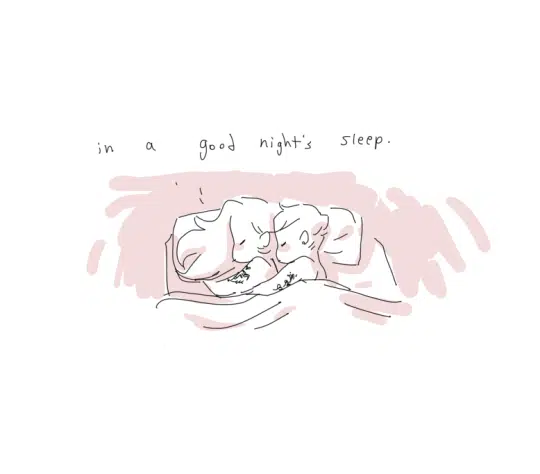 in a good night's sleep.